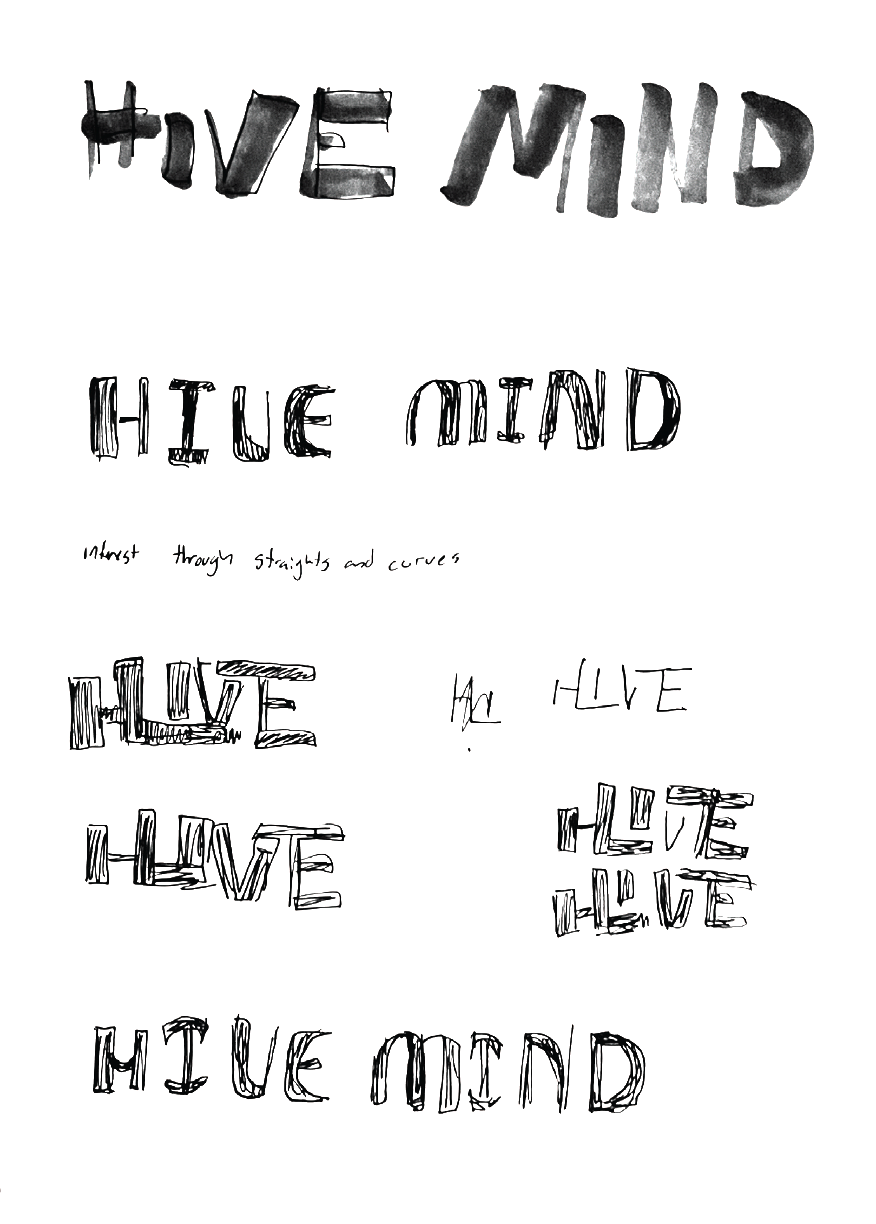 HIVE MIND
HIVE MIND
interest through straights and curves
HIVE
HIVE
HIVE
HIVE
HIVE
HIVE MIND